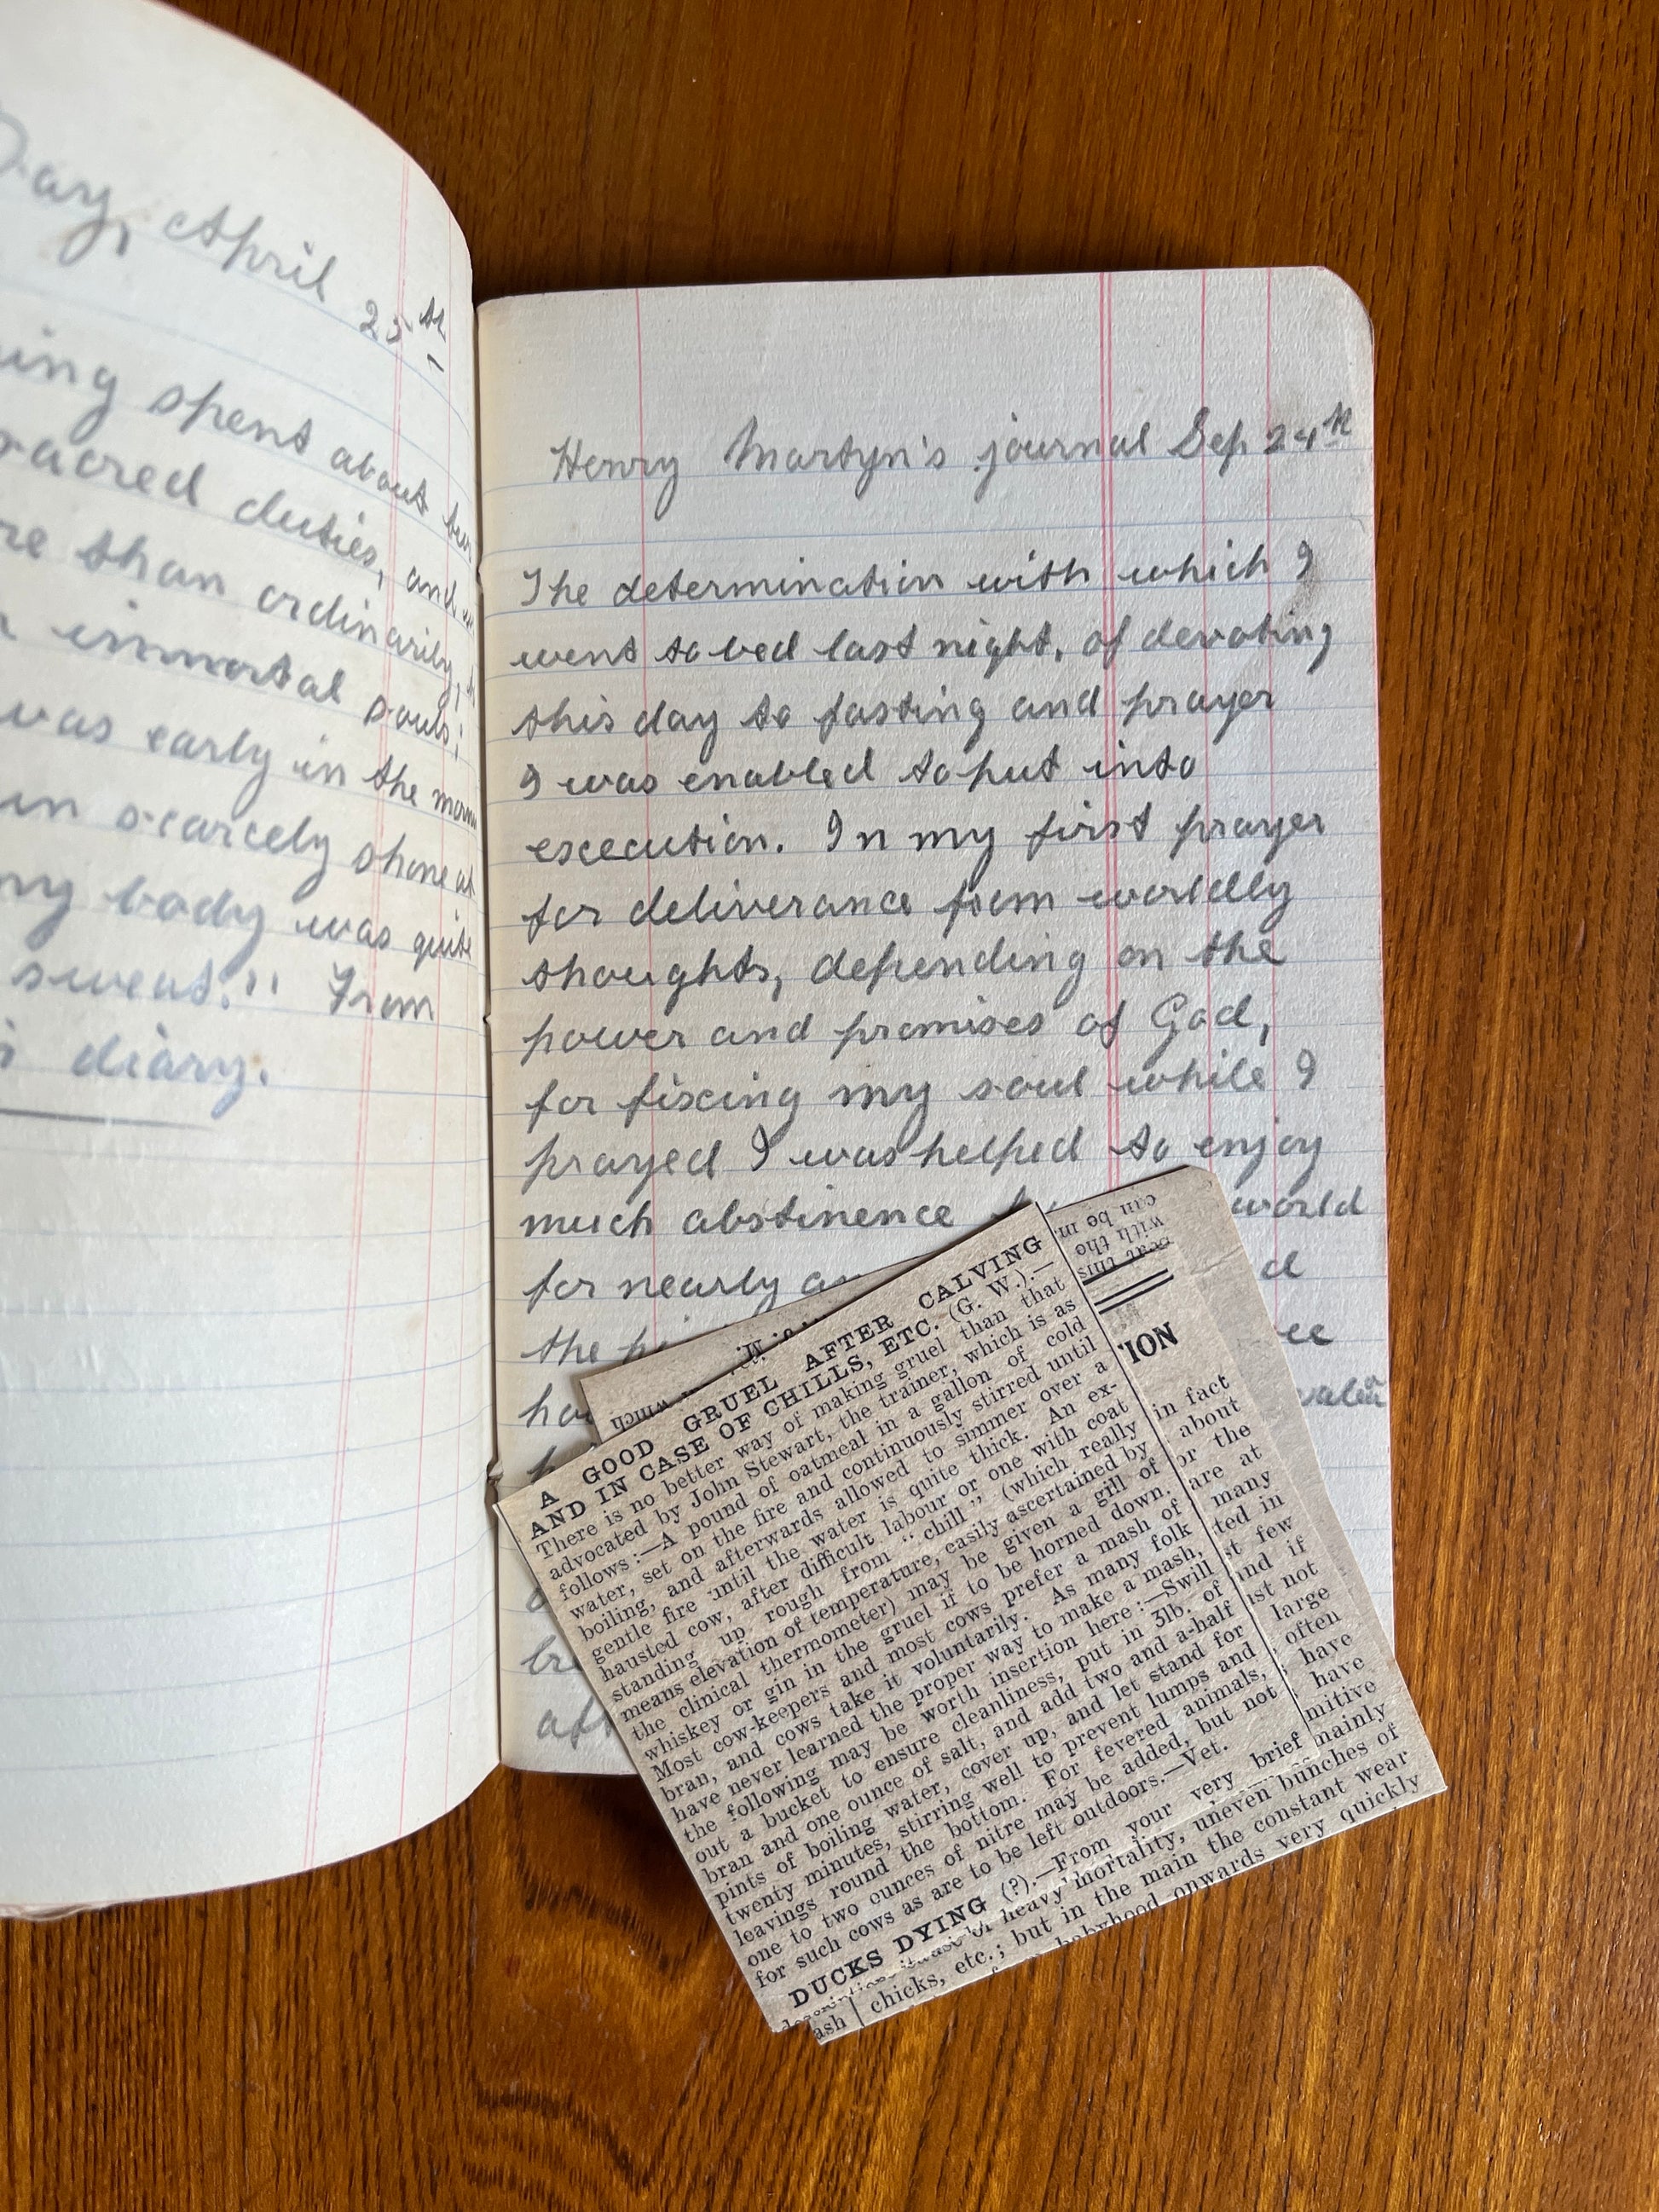 Day, April 25th
ing spent about
sacred duties, and
re than ordinarily,
immortal souls;
was early in the morn
in scarcely shone at
my body was quite
sweat." From
diary.
Henry Martyn's journal Sep 24th
The determination with which I
went to bed last night, of devoting
this day to fasting and prayer
I was enabled to put into
execution. In my first prayer
for deliverance from worldly
thoughts, depending on the
power and promises of God,
for fixing my soul while I
prayed I was helped to enjoy
much abstinence world
for nearly
the
A GOOD GRUEL AFTER CALVING
AND IN CASE OF CHILLS, ETC. (G. W.).—
There is no better way of making gruel than that
advocated by John Stewart, the trainer, which is as
follows:—A pound of oatmeal in a gallon of cold
water, set on the fire and continuously stirred until
boiling, and afterwards allowed to simmer over a
gentle fire until the water is quite thick. An ex-
hausted cow, after difficult labour or one with coat
standing up rough from "chill" (which really
means elevation of temperature, easily ascertained by
the clinical thermometer) may be given a gill of
whiskey or gin in the gruel if to be horned down.
Most cow-keepers and most cows prefer a mash of
bran, and cows take it voluntarily. As many folk
have never learned the proper way to make a mash,
the following may be worth insertion here:—Swill
out a bucket to ensure cleanliness, put in 3lb. of
bran and one ounce of salt, and add two and a-half
pints of boiling water, cover up, and let stand for
twenty minutes, stirring well to prevent lumps and
leavings round the bottom. For fevered animals,
one to two ounces of nitre may be added, but not
for such cows as are to be left outdoors.—Vet.
DUCKS DYING (?).—From your very brief
can be in
with the
ION
in fact
about
or the
are at
many
ted in
st few
and if
ust not
large
often
have
have
mitive
mainly
heavy mortality, uneven bunches of
chicks, etc.; but in the main the constant wear
ash
babyhood onwards very quickly